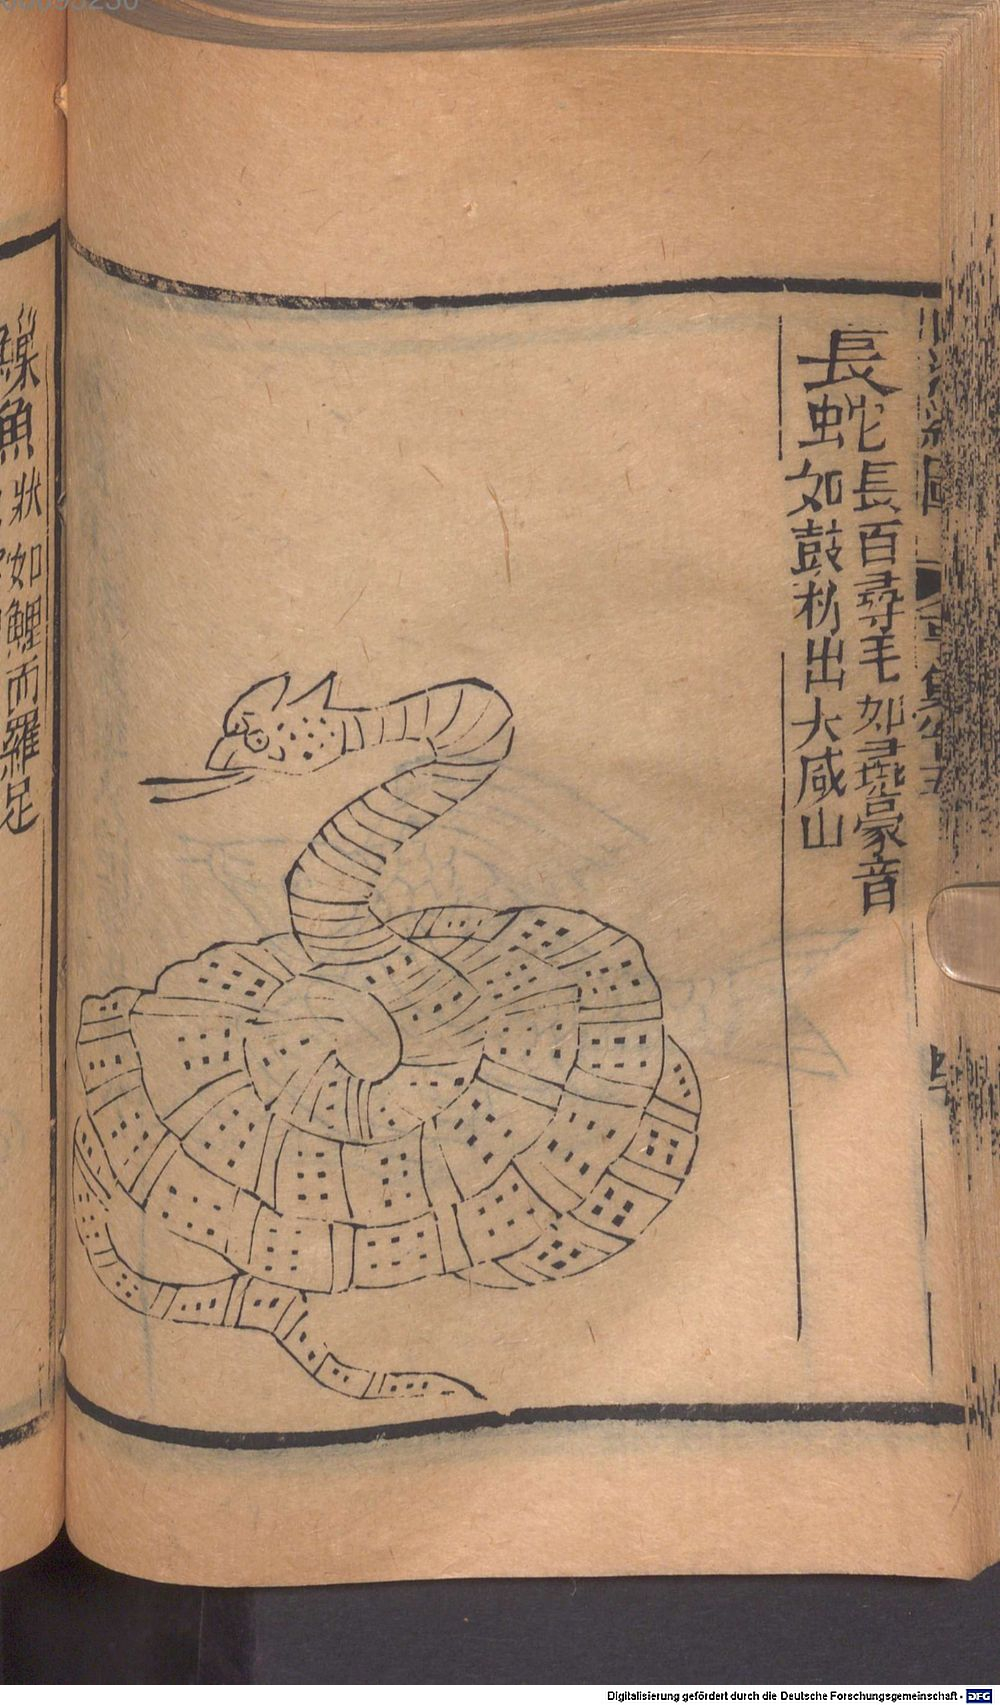 長蛇長百尋毛如彘豪音
如鼓柝出大咸山
鱳魚狀如鯉而雞足
Digitalisierung gefördert durch die Deutsche Forschungsgemeinschaft - DFG